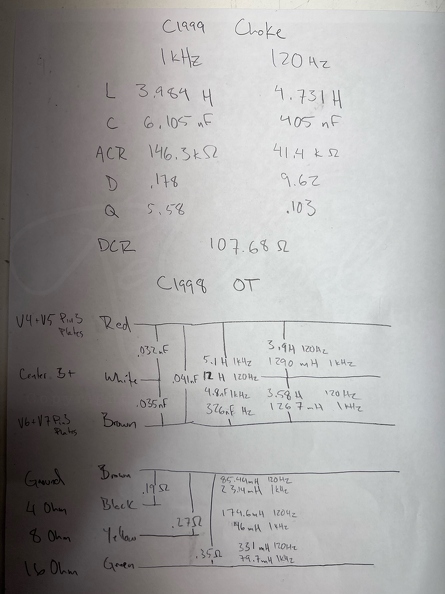 C1999 Choke
1kHz 120Hz
L 3.984 H 4.731H
C 6.105 nF 405 nF
ACR 146.3kΩ 41.4 kΩ
D .178 9.62
Q 5.58 .103
DCR 107.68 Ω
C1998 OT
V4+V5 Pin3 Red
Plates
3.9H 120Hz
.032nF 5.1H 1kHz 1290 mH 1kHz
Center B+ White .041nF 12 H 120Hz
4.8nF 1kHz 3.58H 120Hz
.035nF 326nF Hz 1267mH 1kHz
V6+V7 Pin3 Brown
Plates
Ground Brown
85.49mH 120Hz
.19Ω 23.4mH 1kHz
4 Ohm Black
174.6mH 120Hz
.27Ω 1kHz
8 Ohm Yellow
.35Ω 331mH 120Hz
16 Ohm Green 79.7mH 1kHz